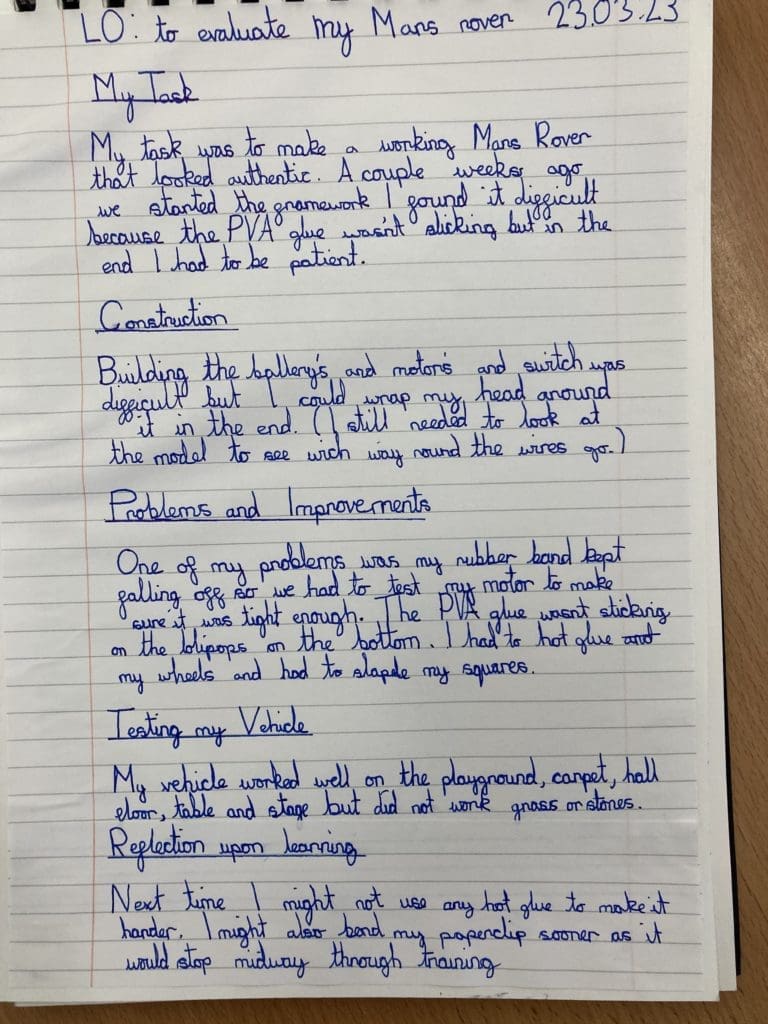 LO: to evaluate my Mars rover 23.03.23
My Task
My task was to make a working Mars Rover
that looked authentic. A couple weeks ago
we started the framework I found it difficult
because the PVA glue wasn't sticking but in the
end I had to be patient.
Construction
Building the battery's and motor's and switch was
difficult but I could wrap my head around
it in the end. (I still needed to look at
the model to see wich way round the wires go.)
Problems and Improvements
One of my problems was my rubber band kept
falling off so we had to test my motor to make
sure it was tight enough. The PVA glue wasnt sticking
on the lolipops on the bottom. I had to hot glue and
my wheels and had to staple my squares.
Testing my Vehicle
My vehicle worked well on the playground, carpet, hall
floor, table and stage but did not work grass or stones.
Reflection upon learning
Next time I might not use any hot glue to make it
harder. I might also bend my paperclip sooner as it
would stop midway through training